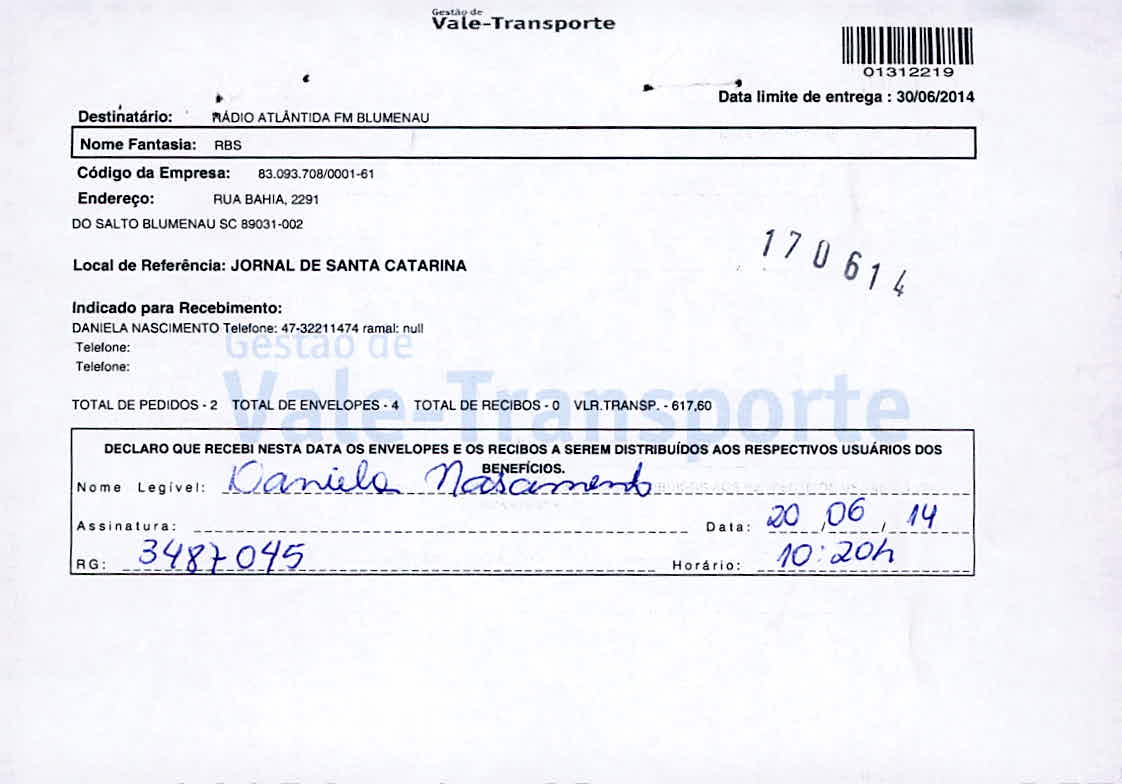 Gestão de
Vale-Transporte
01312219
Data limite de entrega : 30/06/2014
Destinatário: RÁDIO ATLÂNTIDA FM BLUMENAU
Nome Fantasia: RBS
Código da Empresa: 83.093.708/0001-61
Endereço: RUA BAHIA, 2291
DO SALTO BLUMENAU SC 89031-002
170614
Local de Referência: JORNAL DE SANTA CATARINA
Indicado para Recebimento:
DANIELA NASCIMENTO Telefone: 47-32211474 ramal: null
Telefone:
Telefone:
Gestão de
Vale-Transporte
TOTAL DE PEDIDOS - 2 TOTAL DE ENVELOPES - 4 TOTAL DE RECIBOS - 0 VLR.TRANSP. - 617,60
DECLARO QUE RECEBI NESTA DATA OS ENVELOPES E OS RECIBOS A SEREM DISTRIBUÍDOS AOS RESPECTIVOS USUÁRIOS DOS
BENEFÍCIOS.
Nome Legível: Daniela Nascimento
Assinatura: Data: 20/06/14
RG: 3487045 Horário: 10:20h